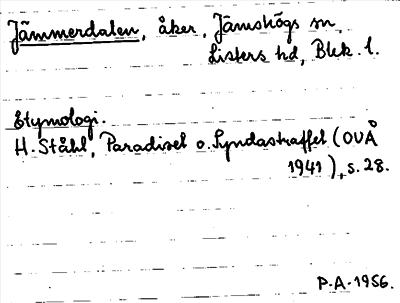 Jämmerdalen, åker, Jämshögs sn,
Listers hd, Blek. l.
Etymologi.
H. Ståhl, Paradiset o. Syndastraffet (OUÅ
1941), s. 28.
P-A-1956.